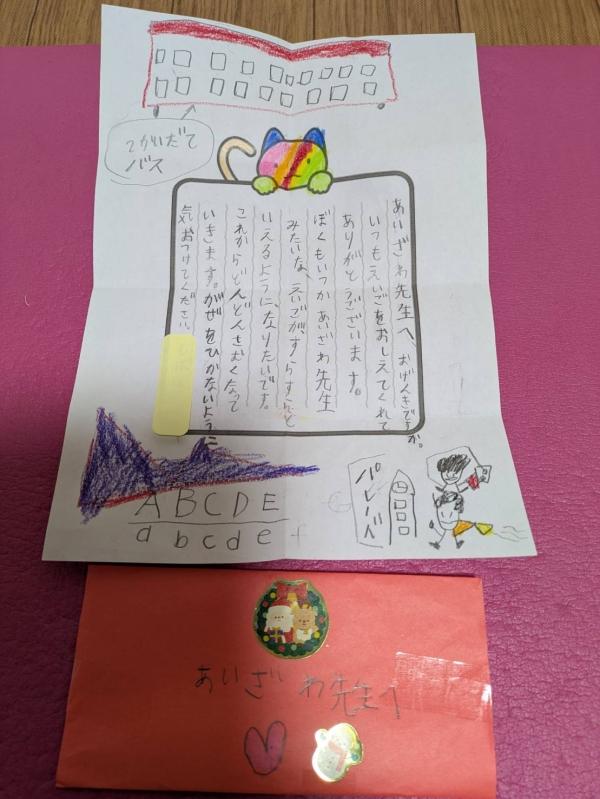 2かいだて
バス
あいざわ先生へ、おげんきですか。
いつもえいごをおしえてくれて
ありがとうございます。
ぼくもいつかあいざわ先生
みたいな、えいごが、すらすらと
いえるように、なりたいです。
これからどんどんさむくなって
いきます。がぜをひかないように
気おつけてください。
A B C D E
a b c d e f
あいざわ先生へ